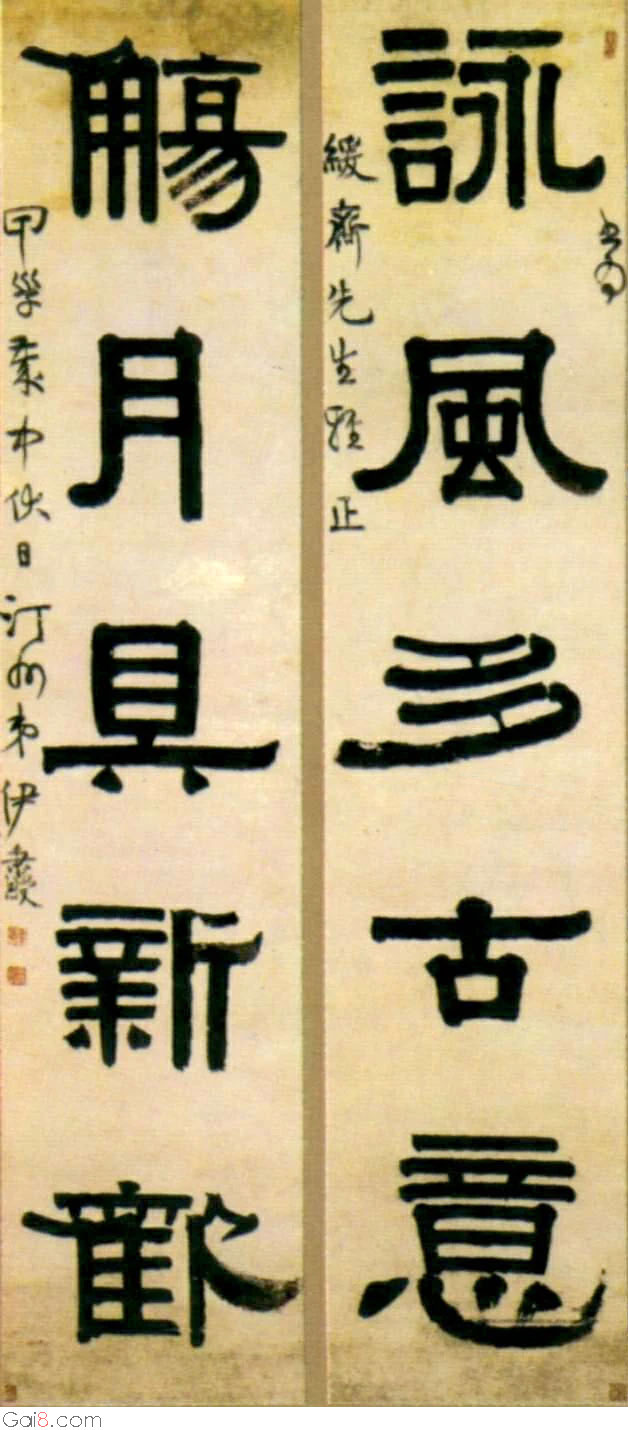 詠風多古意
書為
緩齋先生雅正
觴月具新歡
甲歲中伏日汀州弟伊秉綬
Gai8.com